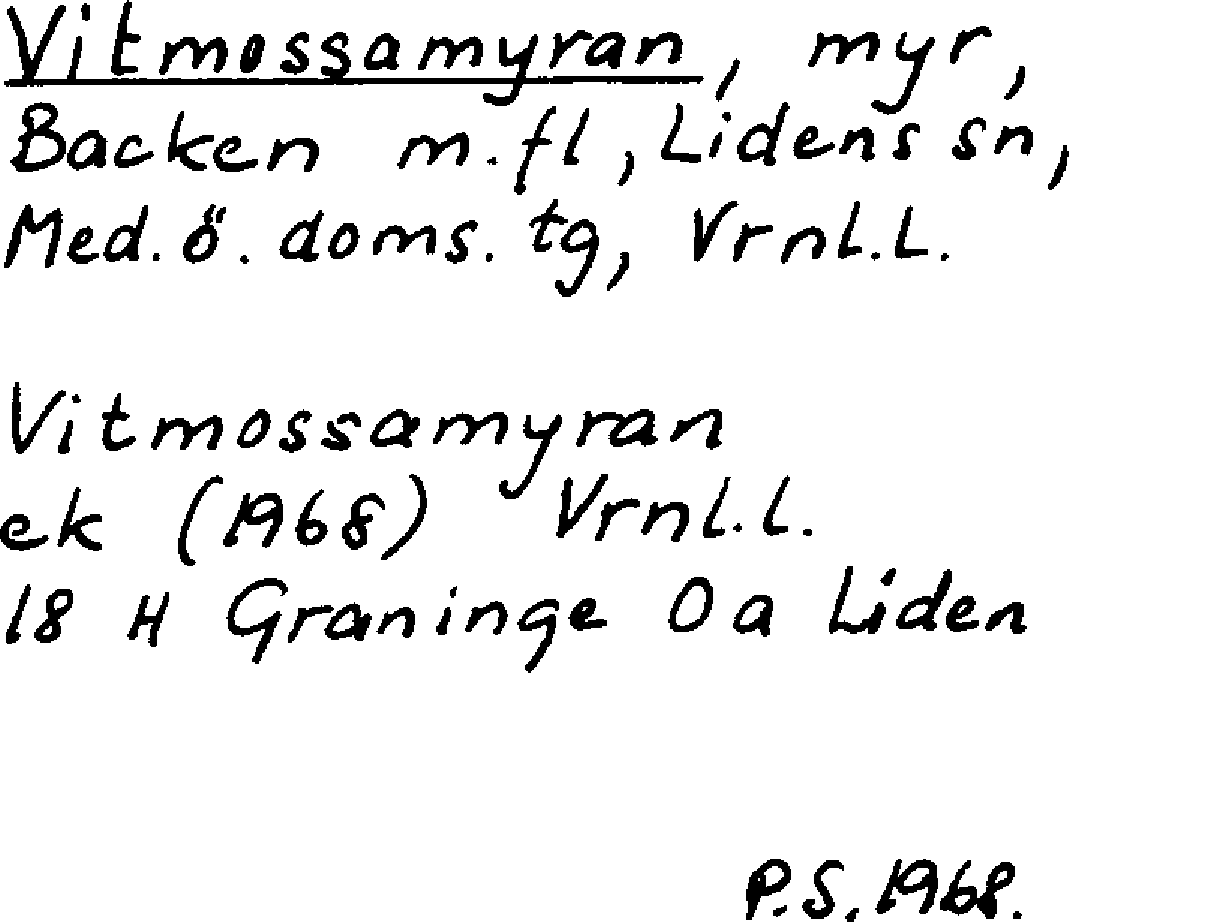 Vitmossamyran, myr,
Backen m.fl, Lidens sn,
Med. ö. doms. tg, Vrnl.L.
Vitmossamyran
ek (1968) Vrnl.l.
18 H Graninge 0a Liden
P.S. 1968.